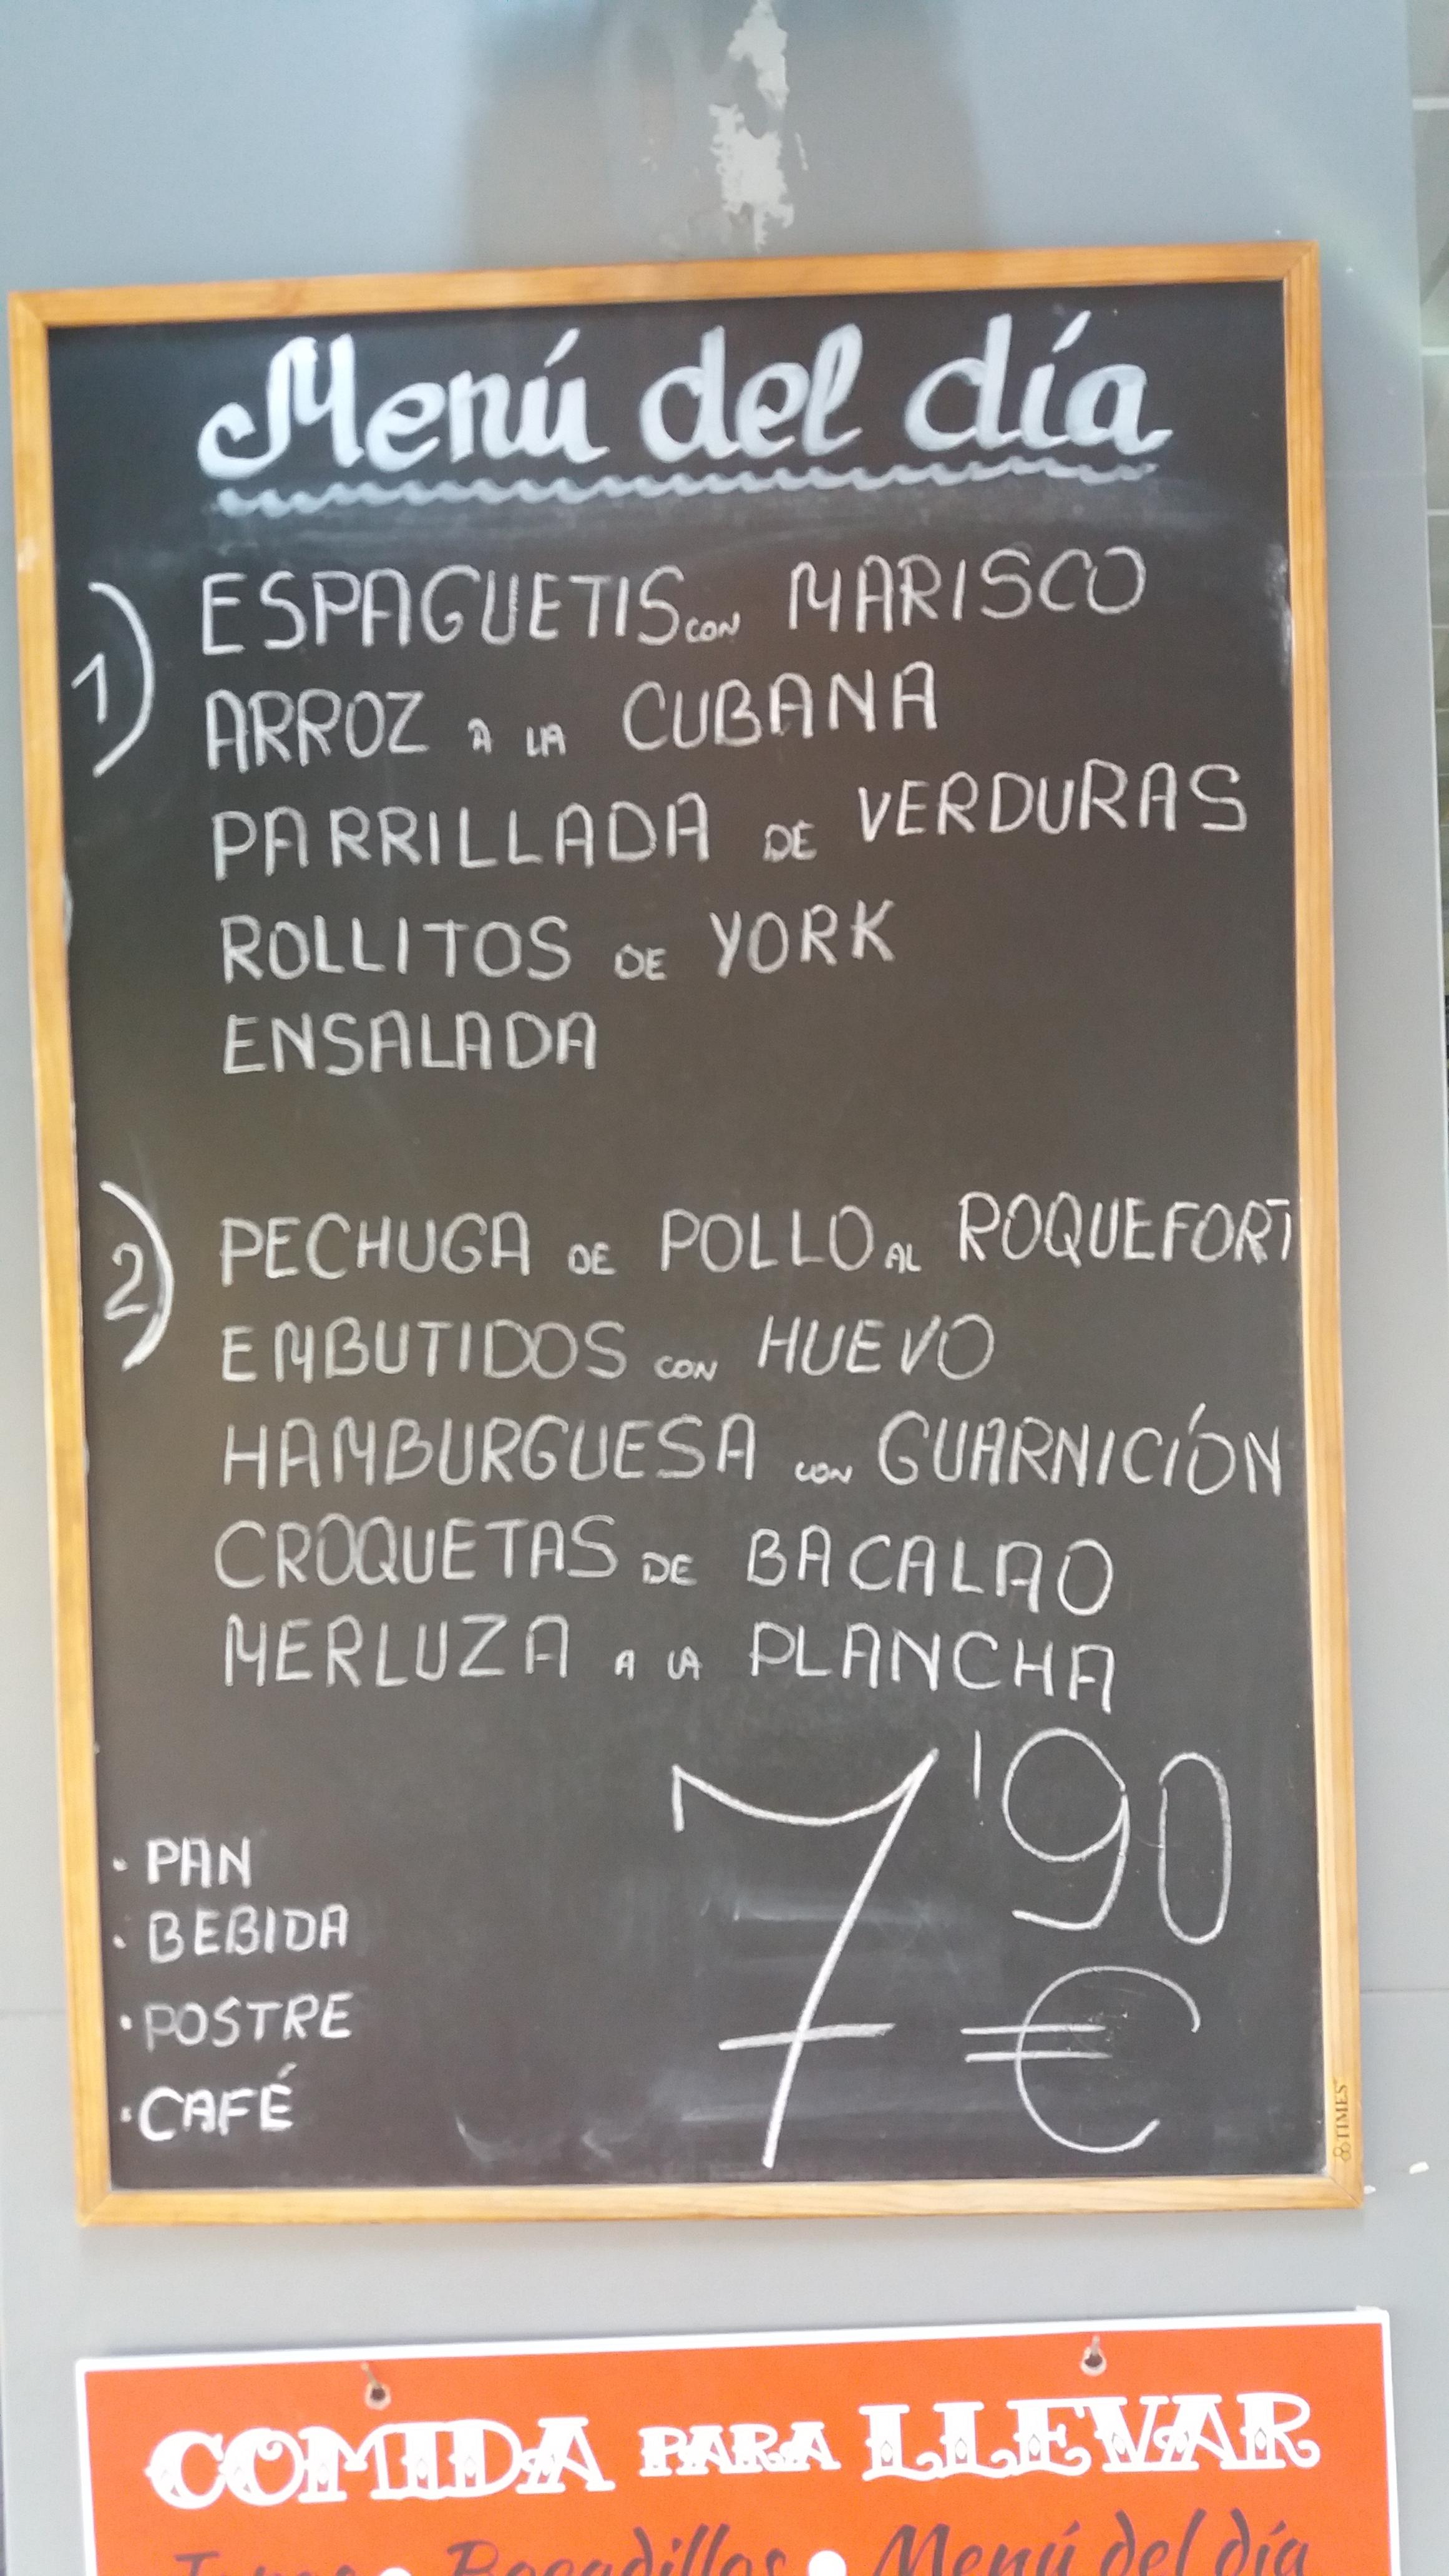 Menú del día
1) ESPAGUETIS CON MARISCO
ARROZ A LA CUBANA
PARRILLADA DE VERDURAS
ROLLITOS DE YORK
ENSALADA
2) PECHUGA DE POLLO AL ROQUEFORT
EMBUTIDOS CON HUEVO
HAMBURGUESA CON GUARNICIÓN
CROQUETAS DE BACALAO
MERLUZA A LA PLANCHA
7'90 €
· PAN
· BEBIDA
· POSTRE
· CAFÉ
TIMES
COMIDA PARA LLEVAR
Bocadillos • Menú del día